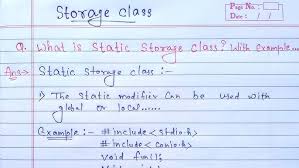 Storage Class
Page No.:
Date: / /
Q. What is Static Storage class? With Example...
Ans → Static Storage class :-
1) The Static modifier can be used with
global or local......
Example :- #include<stdio.h>
#include<conio.h>
void fun();